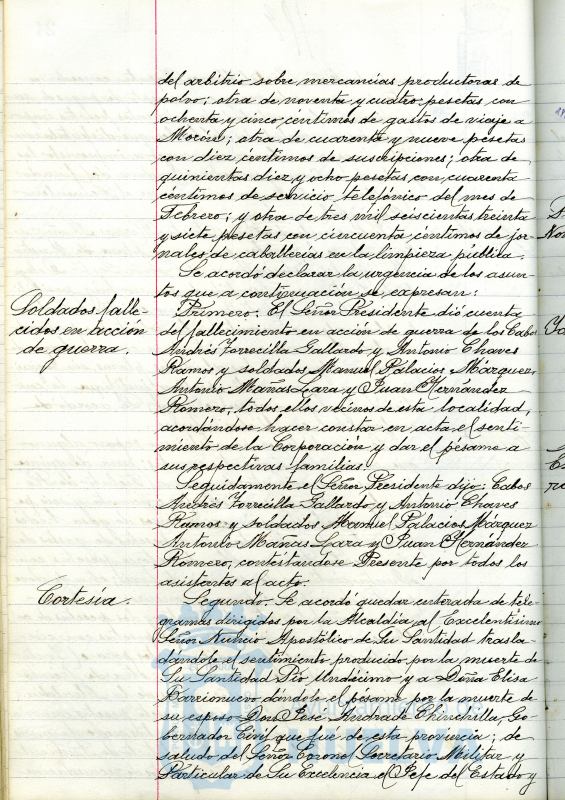 del arbitrio sobre mercancías productoras de
polvo; otra de noventa y cuatro pesetas con
ochenta y cinco céntimos de gastos de viaje a
Morón; otra de cuarenta y nueve pesetas
con diez céntimos de suscripciones; otra de
quinientas diez y ocho pesetas con cuarenta
céntimos de servicio telefónico del mes de
Febrero; y otra de tres mil seiscientas treinta
y siete pesetas con cincuenta céntimos de jor-
nales de caballerías en la limpieza pública.
Se acordó declarar la urgencia de los asun-
tos que a continuación se expresan:
Soldados falle-
cidos en acción
de guerra.
Primero. El Señor Presidente dió cuenta
del fallecimiento en acción de guerra de los Cabos
Andrés Torrecilla Gallardo y Antonio Chaves
Ramos y soldados Manuel Palacios Márquez,
Antonio Mañas Lara y Juan Hernández
Romero, todos ellos vecinos de esta localidad,
acordándose hacer constar en acta el senti-
miento de la Corporación y dar el pésame a
sus respectivas familias.
Seguidamente el Señor Presidente dijo: Cabos
Andrés Torrecilla Gallardo y Antonio Chaves
Ramos y soldados Manuel Palacios Márquez
Antonio Mañas Lara y Juan Hernández
Romero, contestándose Presente por todos los
asistentes al acto.
Cortesía.
Segundo. Se acordó quedar enterada de tele-
gramas dirigidos por la Alcaldía al Excelentísimo
Señor Nuncio Apostólico de Su Santidad trasla-
dándole el sentimiento producido por la muerte de
Su Santidad Pío Undécimo y a Doña Elisa
Barrionuevo dándole el pésame por la muerte de
su esposo Don José Andrade Chinchilla, Go-
bernador Civil que fué de esta provincia; de
saludo del Señor Coronel Secretario Militar y
Particular de Su Excelencia el Jefe del Estado y